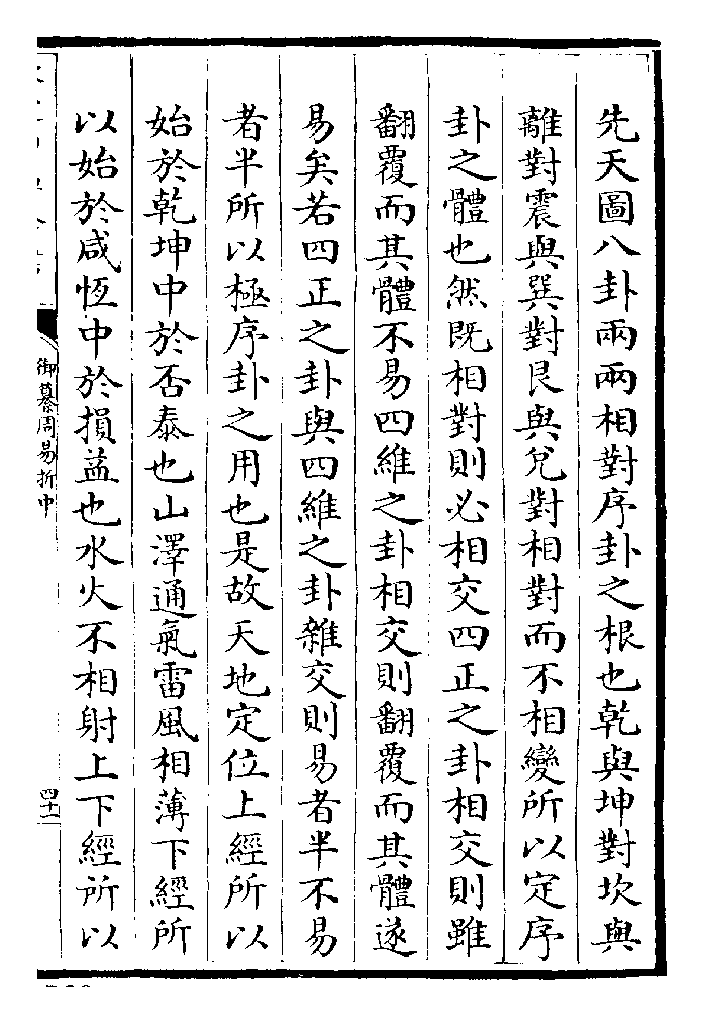 先天圖八卦兩兩相對序卦之根也乾與坤對坎與
離對震與巽對艮與兌對相對而不相變所以定序
卦之體也然既相對則必相交四正之卦相交則雖
翻覆而其體不易四維之卦相交則翻覆而其體遂
易矣若四正之卦與四維之卦雜交則易者半不易
者半所以極序卦之用也是故天地定位上經所以
始於乾坤中於否泰也山澤通氣雷風相薄下經所
以始於咸恆中於損益也水火不相射上下經所以
御纂周易折中
四十一